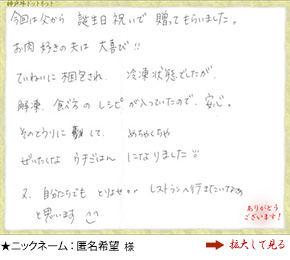 神戸牛ドットネット
今回は父から 誕生日祝いで 贈ってもらいました。
お肉好きの夫は大喜び!!
ていねいに梱包され、冷凍状態でしたが、
解凍、食べ方のレシピが入っていたので、安心。
そのとうりに して、めちゃくちゃ
ぜいたくな うちごはん になりました
又、自分たちでも とりよせ レストランへ行きたいなぁ
と思います
ありがとう
ございます!
★ニックネーム:匿名希望 様
拡大して見る